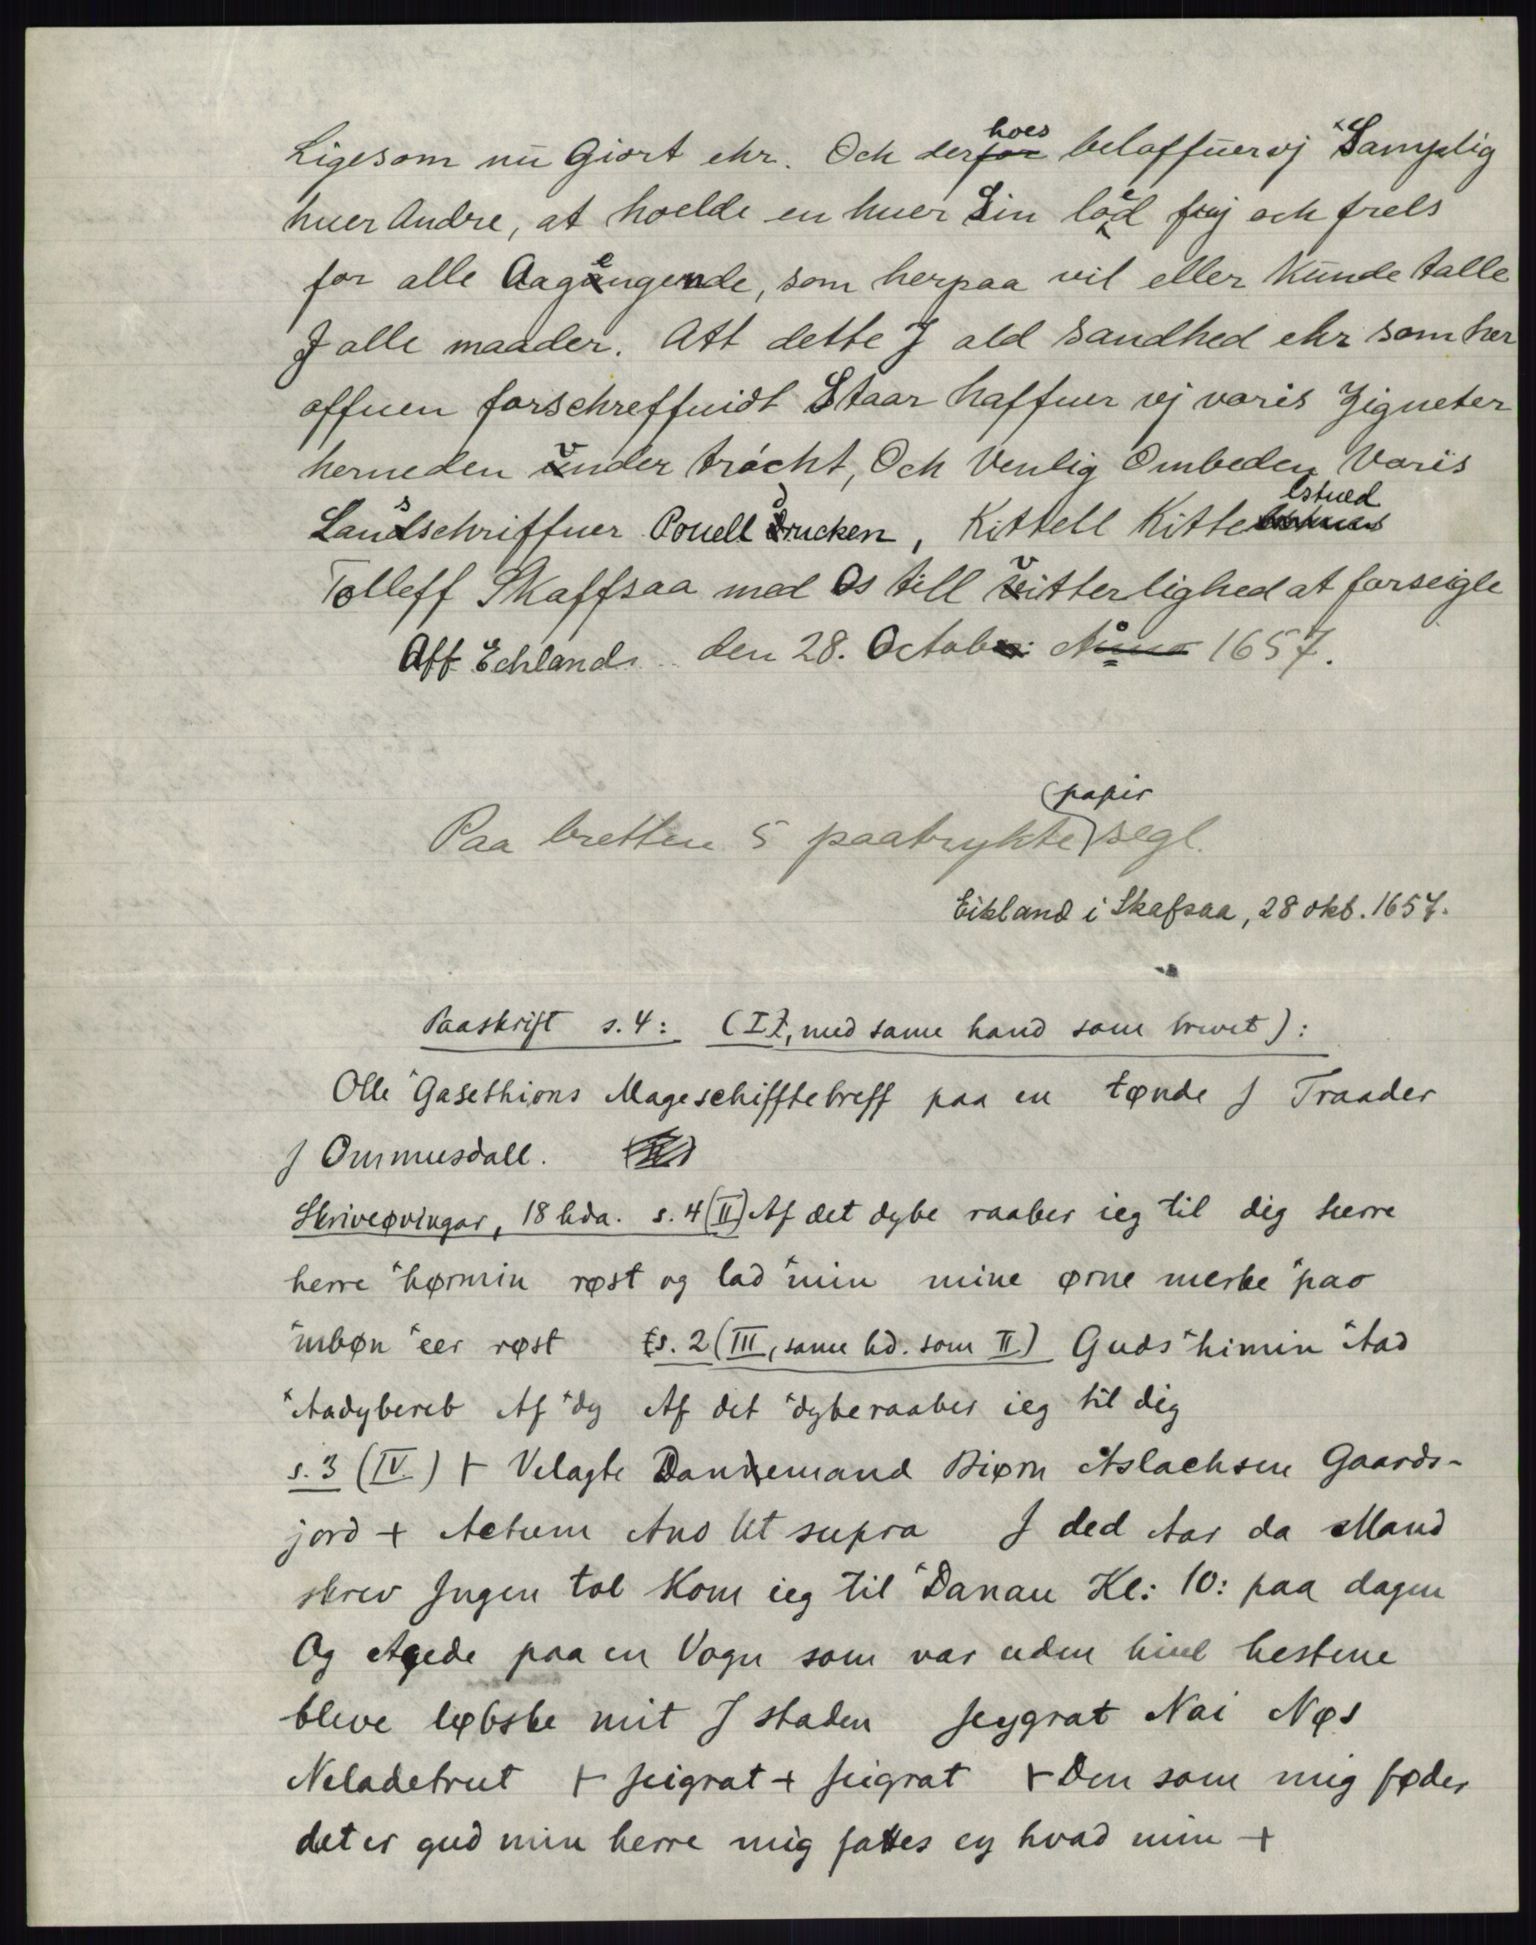 Ligesom nu Giort ehr. Och derhoes beloffuer vj Samptlig
huer Andre, at hoelde en huer Sin loed fry och frels
for alle Aagengende, som herpaa vil eller Kunde talle
J alle maader. Att dette J ald Sandhed ehr som her
offuen forschreffuidt Staar haffuer vj voris Zigneter
herneden vnder tröcht, Och Venlig Ombeden Voris
Landschriffuer Pouell Drucken, Kittell Kitte lstued
Tolleff Skaffsaa med Os till vitterlighed at forseigle
Aff Echland den 28. Octob: Aº 1657.
papir
Paa bretten 5 paatrykte segl.
Eikland i Skafsaa, 28 okt. 1657.
Paaskrift s. 4: (I, med same hand som brevet):
Olle Gasethions Mageschifftebreff paa en tønde J Traader
J Ommusdall.
Skriveøvingar, 18 hda. s. 4 (II) Af det dybe raaber ieg til dig herre
herre hørmin røst og lad min mine ørne merke pao
mbøn eer røst s. 2 (III, same hd. som II) Guds himin Aad
Aadybereb Af dy Af det dyberaaber ieg til dig
s. 3 (IV.) + Velagte Dannemand Biørn Aslachsen Gaards-
jord + Actum Ano Ut supra J ded Aar da Mand
skrev Jngen tal Kom ieg til Danau Kl: 10: paa dagen
Og Agede paa en Vogn som var uden hiul hestene
bleve løbske mit J staden feygrat Nai Nøs
Neladetrut + feigrat + feigrat + Den som mig føder
det er gud min herre mig fattes ey hvad min +